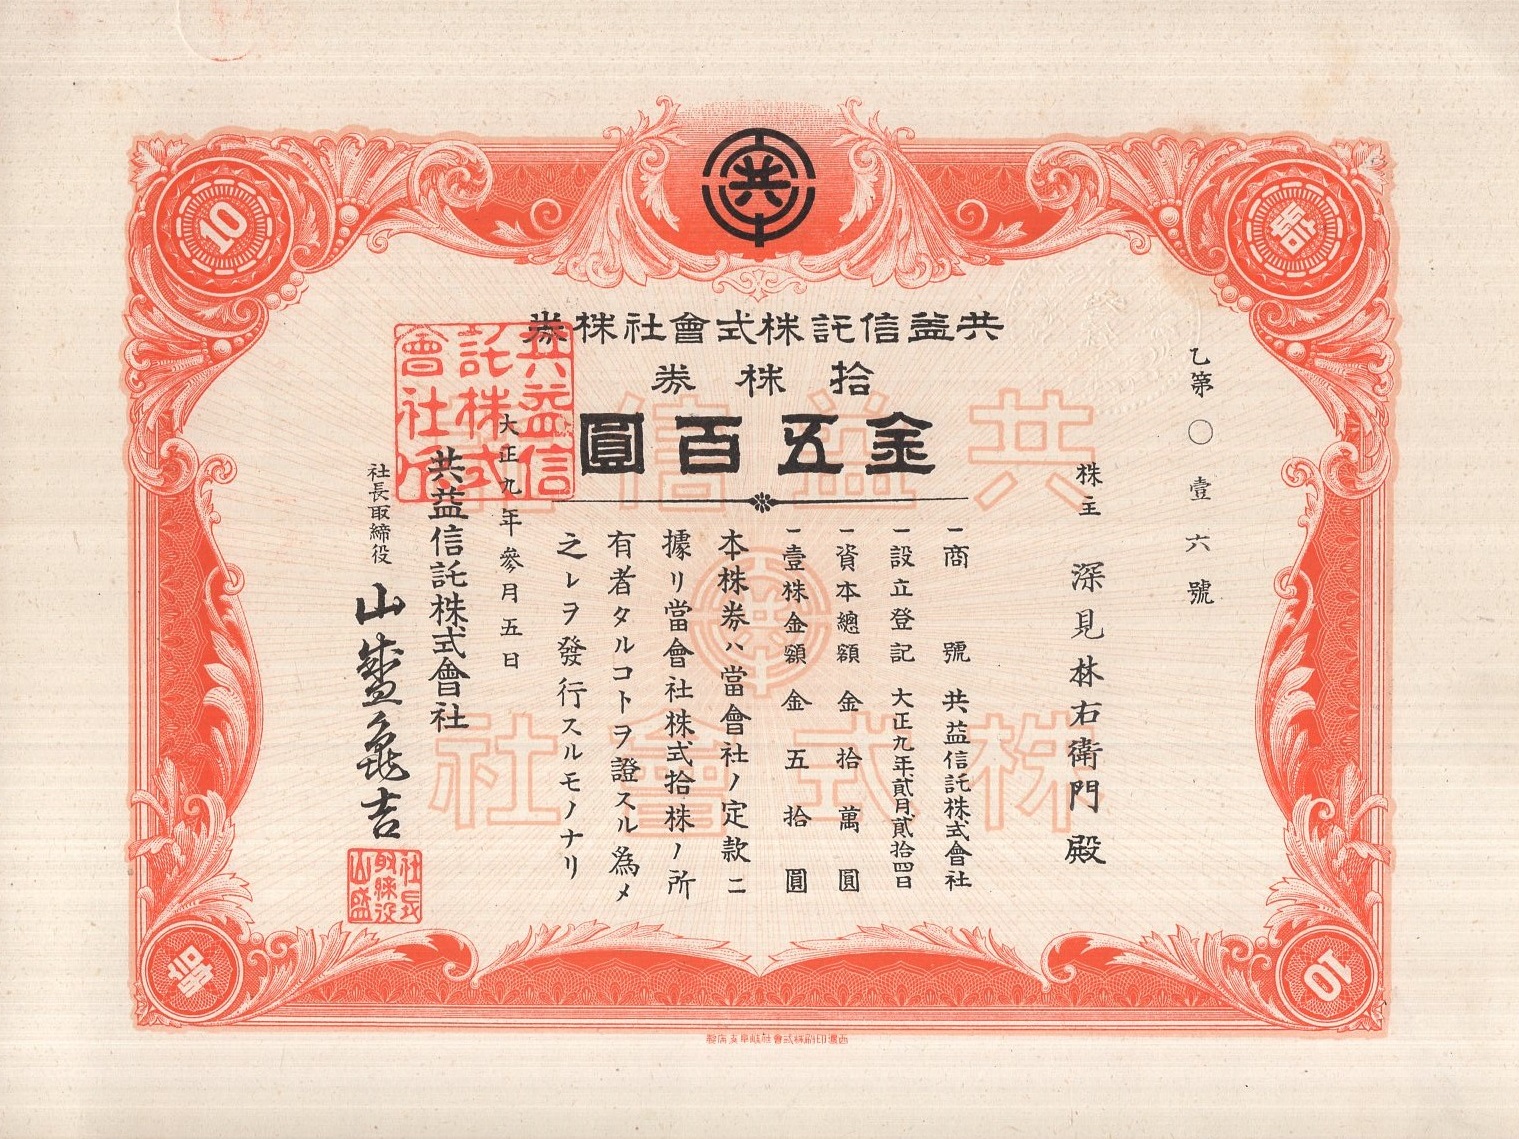 共
10
拾
共益信託株式會社株券
拾株券
金五百圓
乙第〇壹六號
株主 深見林右衛門殿
一商號 共益信託株式會社
一設立登記 大正九年貳月貳拾四日
一資本總額 金拾萬圓
一壹株金額 金五拾圓
本株券ハ當會社ノ定款ニ
據リ當會社株式拾株ノ所
有者タルコトヲ證スル爲メ
之レヲ發行スルモノナリ
大正九年參月五日
共益信託株式會社
社長取締役 山盛亀吉
共益信
託株式
會社印
社長
取締役
山盛
共益信託
株式會社
共
拾
10
西濃印刷株式會社岐阜支店製